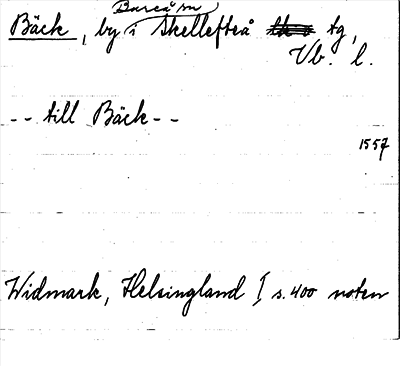 Bäck, by i Bureå sn Skellefteå tg,
Vb. l.
-- till Bäck --
1557
Widmark, Helsingland I s. 400 noten